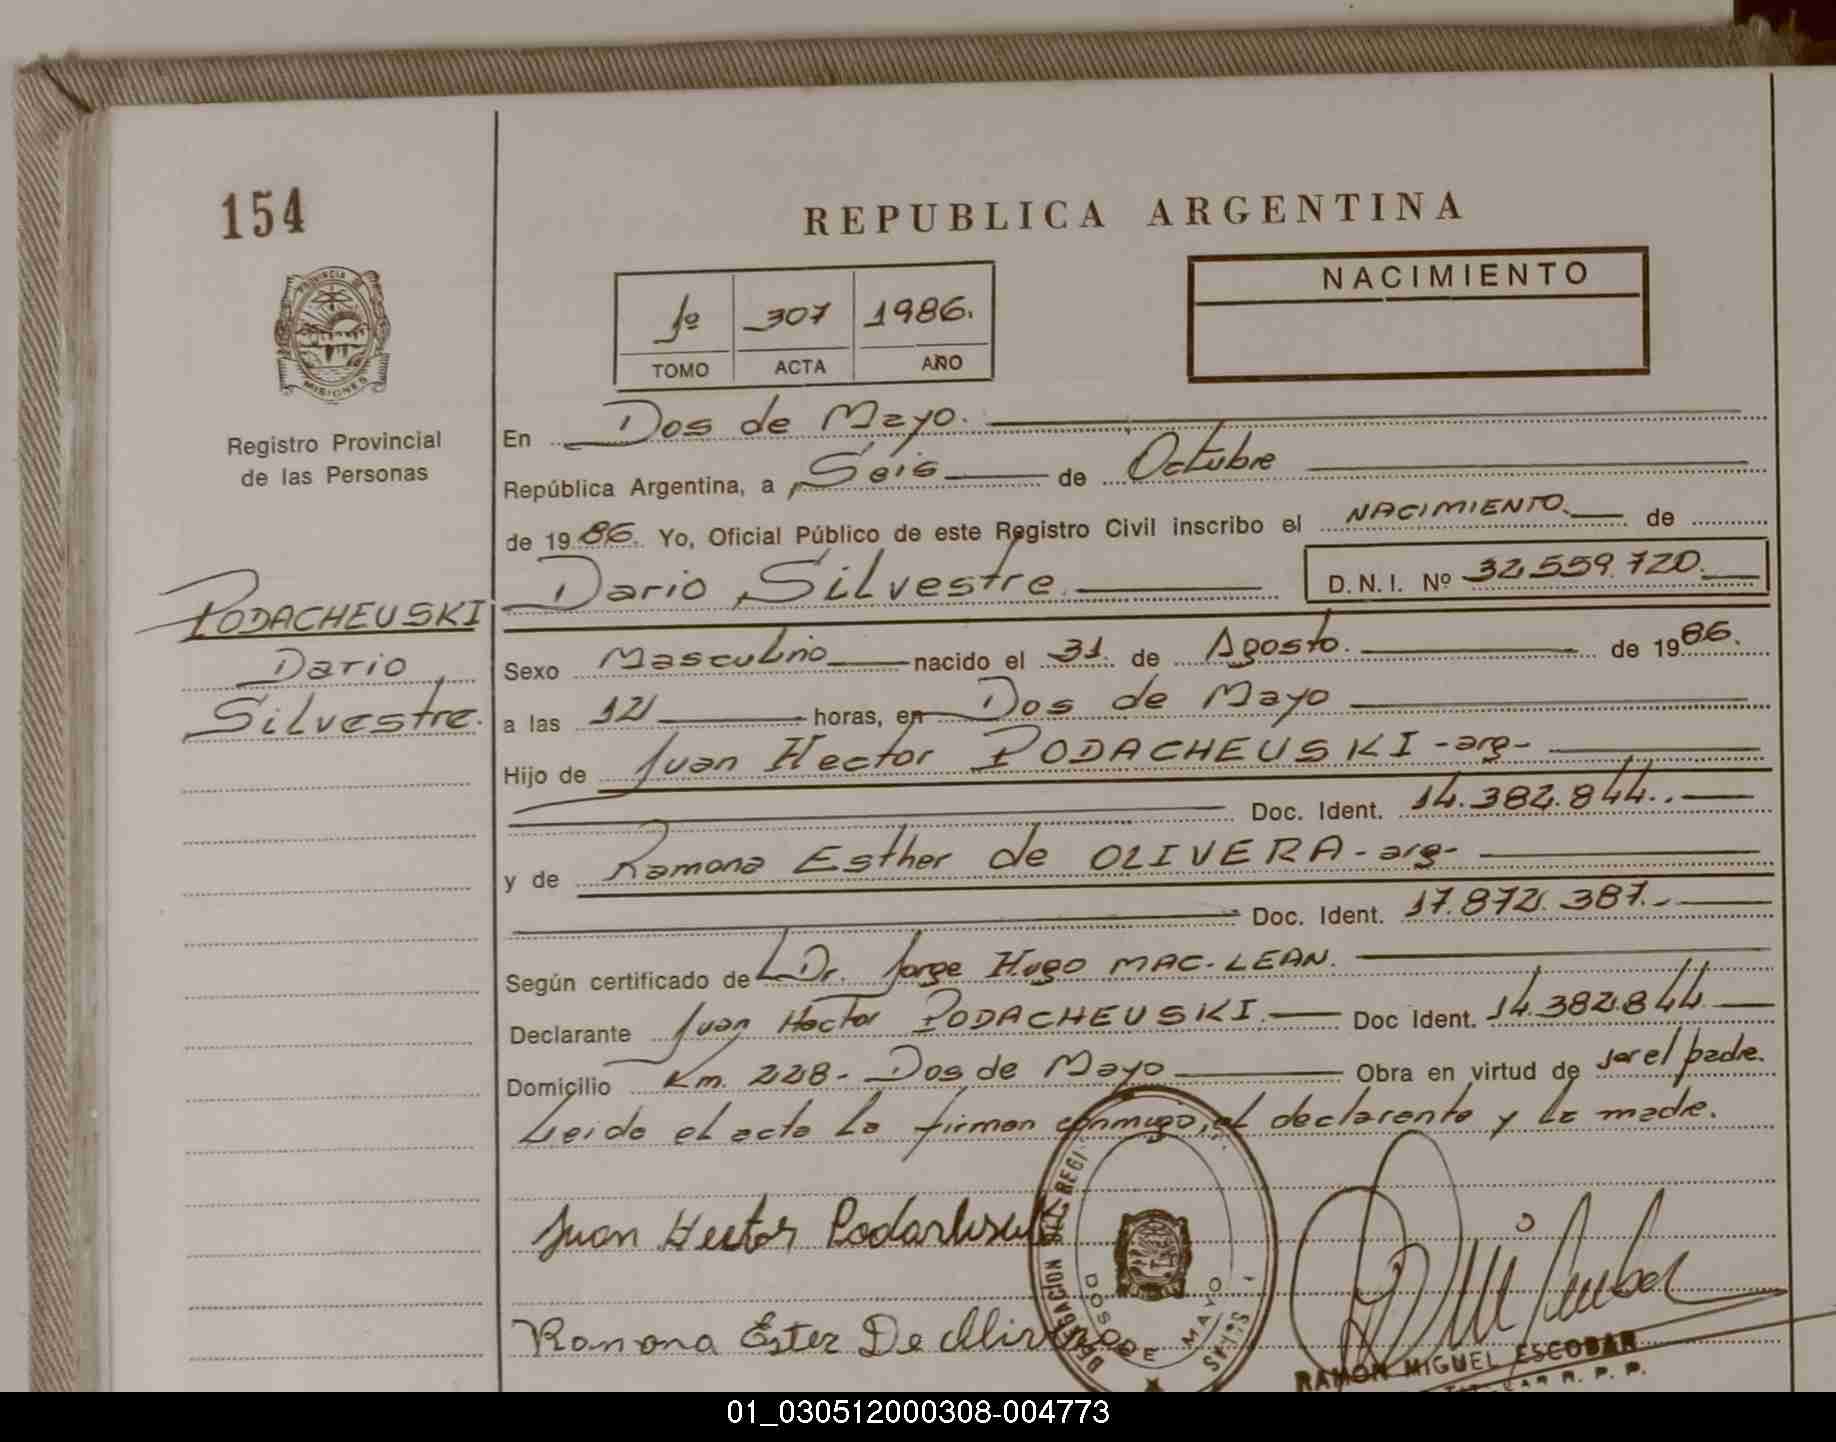 154
REPUBLICA ARGENTINA
PROVINCIA DE
MISIONES
Registro Provincial
de las Personas
1º 307 1986.
TOMO ACTA AÑO
NACIMIENTO
En Dos de Mayo.
República Argentina, a Seis de Octubre
de 1986. Yo, Oficial Público de este Registro Civil inscribo el NACIMIENTO. de
Dario Silvestre. D.N.I. Nº 32.559.720.
PODACHEUSKI
Dario
Silvestre.
Sexo Masculino nacido el 31. de Agosto. de 1986.
a las 12 horas, en Dos de Mayo
Hijo de Juan Hector PODACHEUSKI -arg-
Doc. Ident. 14.382.844.
y de Ramona Esther de OLIVERA -arg-
Doc. Ident. 17.872.387.-
Según certificado de Dr. Jorge Hugo MAC-LEAN.
Declarante Juan Hector PODACHEUSKI. Doc Ident. 14.382.844
Domicilio Km. 228- Dos de Mayo Obra en virtud de ser el padre.
Leida el acta la firman conmigo, el declarante y la madre.
Juan Hector
Ramona Ester De
DELEGACION DEL REGI
DOS DE MAYO
RAMON MIGUEL ESCOBAR
R. P. P.
01_030512000308-004773